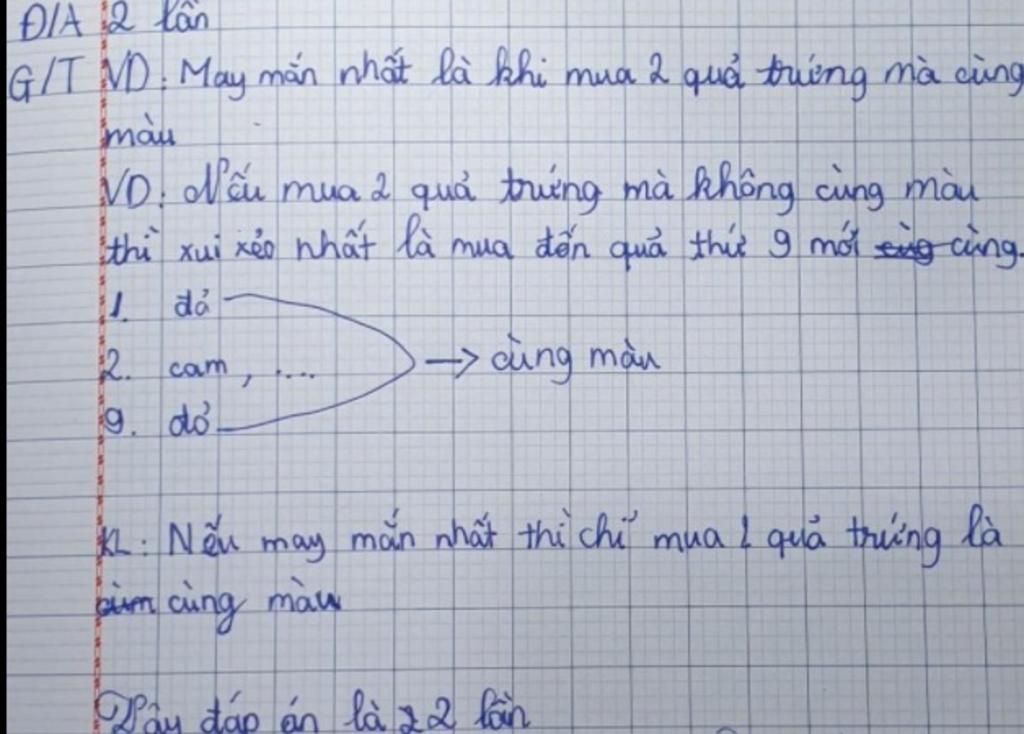 Đ/A 2 lần
G/T VD: May mắn nhất là khi mua 2 quả trứng mà cùng
màu
VD: Nếu mua 2 quả trứng mà không cùng màu
thì xui xẻo nhất là mua đến quả thứ 9 mới cùng.
1. đỏ
2. cam, .... → cùng màu
9. đỏ
KL: Nếu may mắn nhất thì chỉ mua 1 quả trứng là
cùng màu
Vậy đáp án là 2 lần